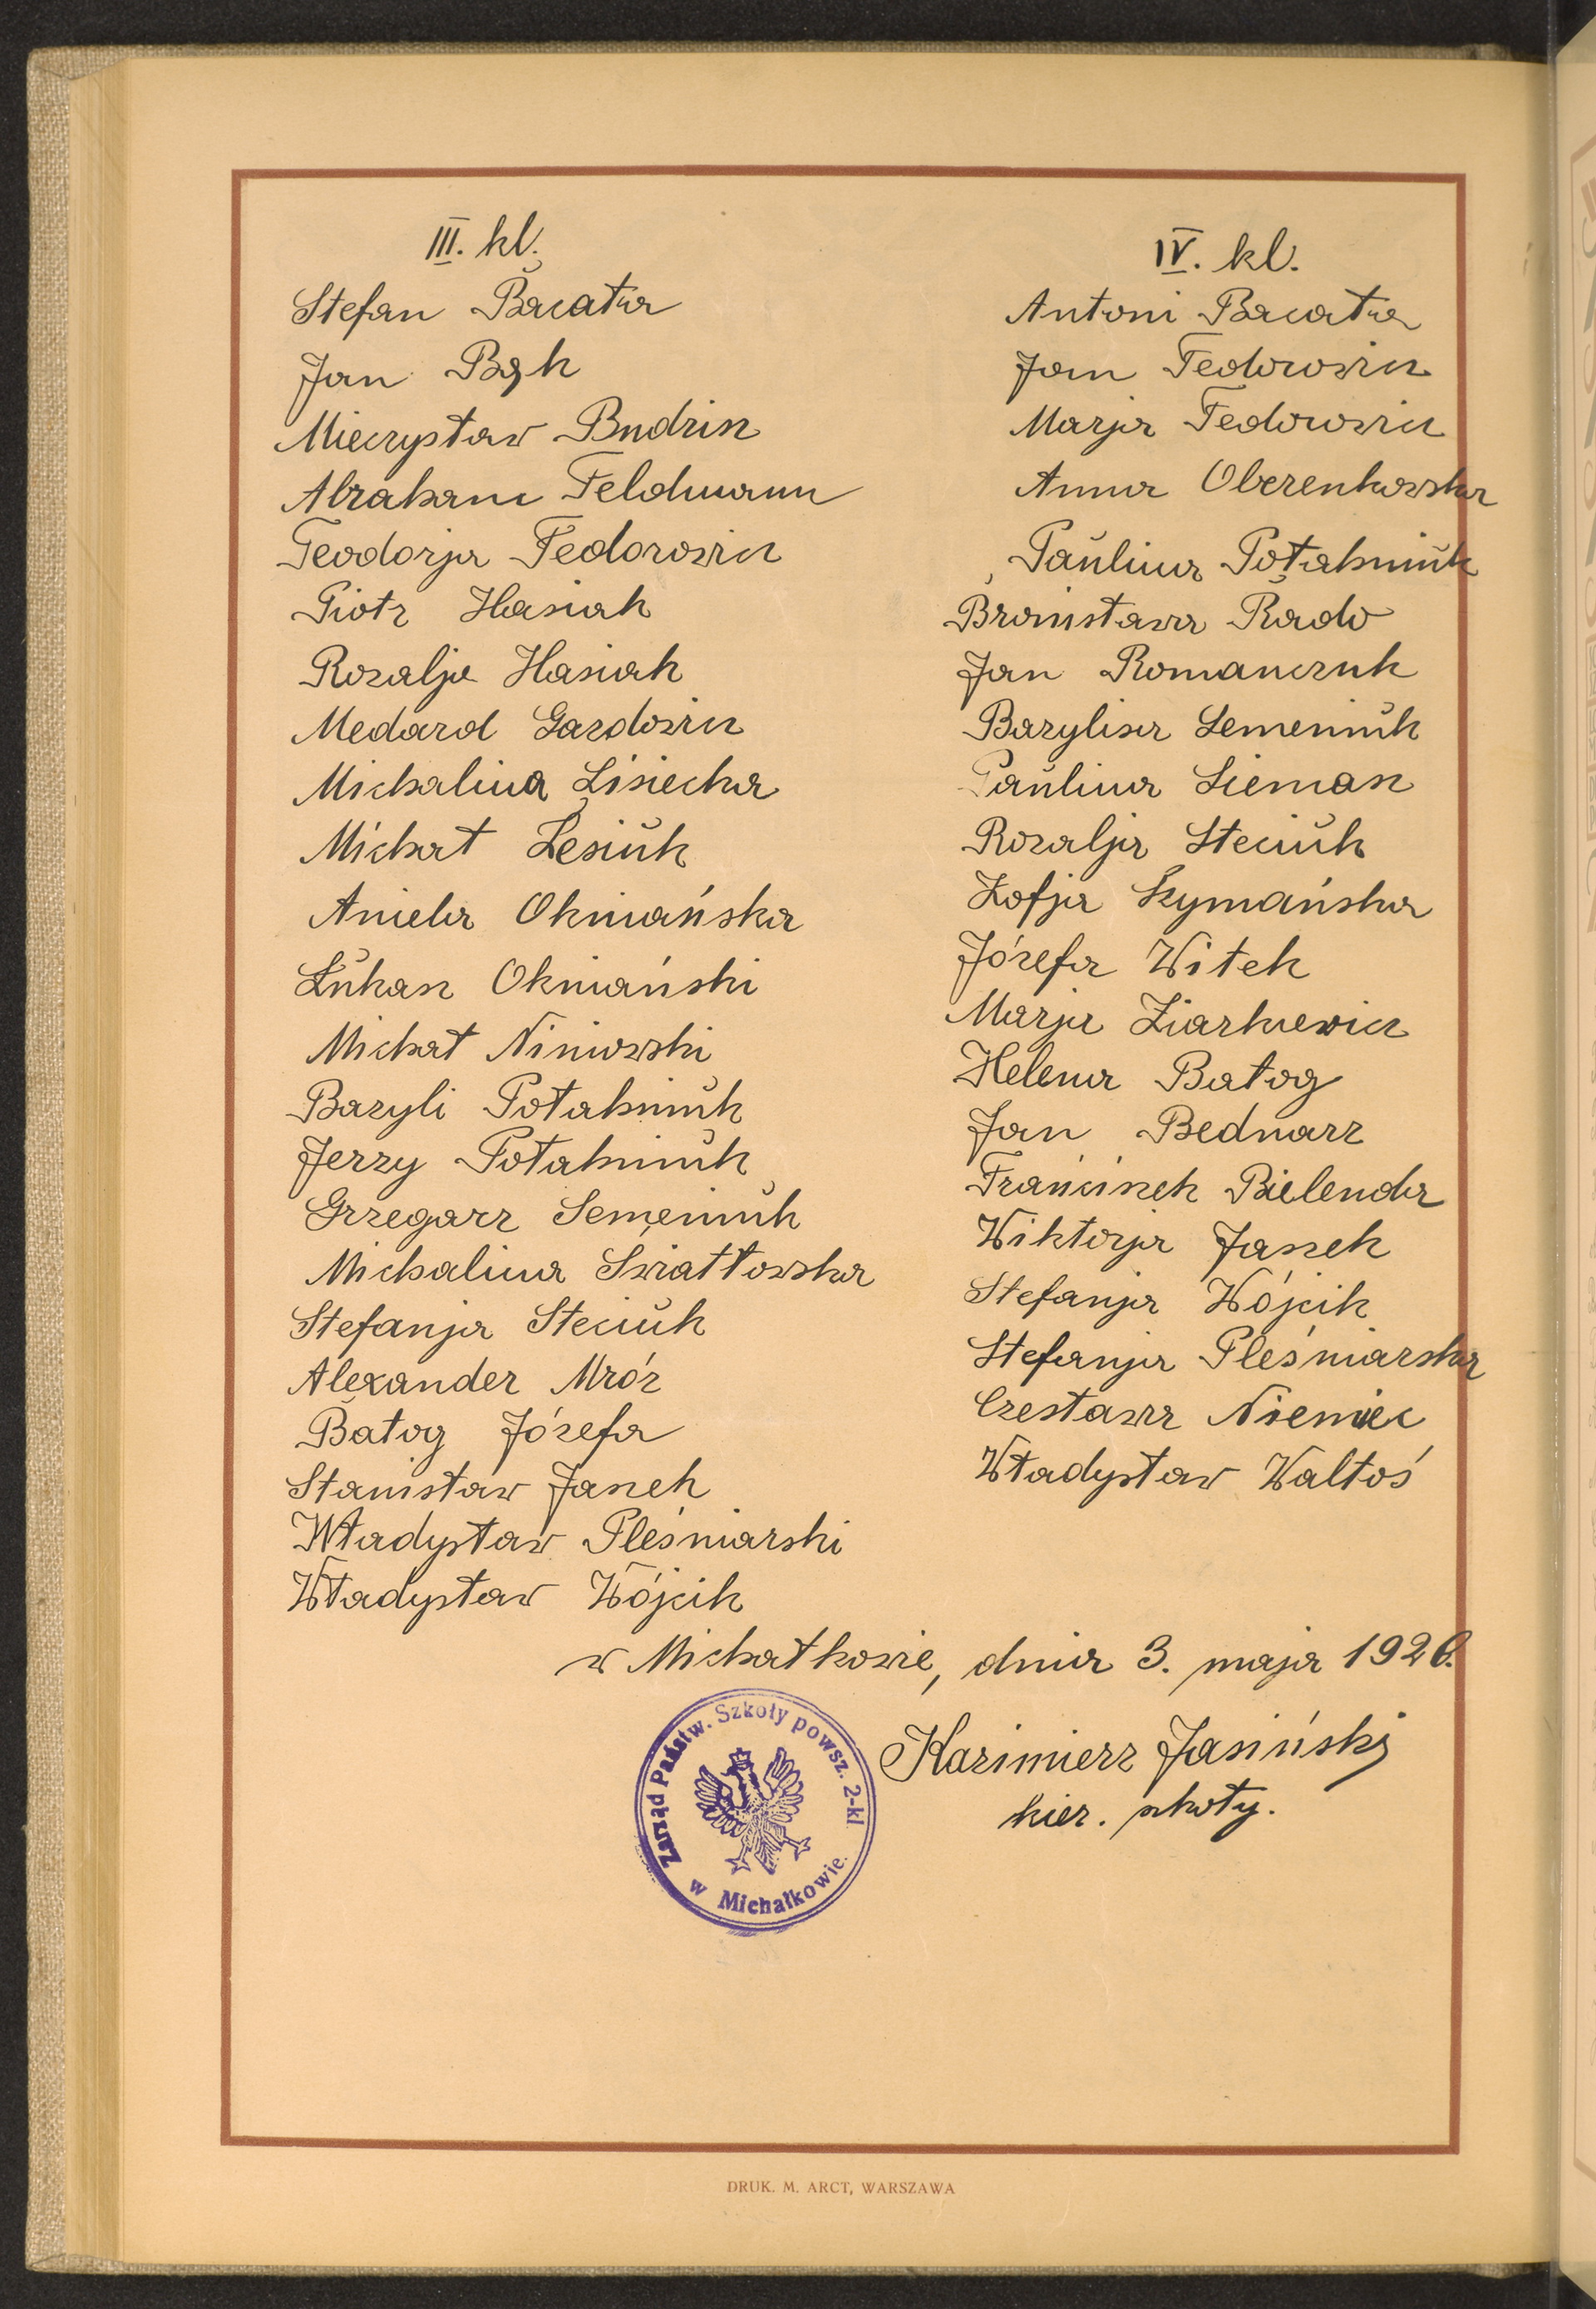 III. kl.
Stefan Bacatwa
Jan Bąk
Mieczysław Budzisz
Abraham Feldmann
Teodorja Fedorowicz
Piotr Hasiak
Rozalja Hasiak
Medard Gazdowicz
Michalina Lisiecka
Michał Lesiuk
Aniela Okniańska
Łukasz Okniański
Michał Niniowski
Bazyli Potakniuk
Jerzy Potakniuk
Grzegorz Semeniuk
Michalina Światłowska
Stefanja Steciuk
Alexander Mróz
Batog Józefa
Stanisław Jaszek
Władysław Pleśniarski
Władysław Wójcik
IV. kl.
Antoni Bacatwa
Jan Fedorowicz
Marja Fedorowicz
Anna
Paulina Potakniuk
Bronisława Rado
Jan Romanczuk
Bazylisa Semeniuk
Paulina Siemasz
Rozalja Steciuk
Zofja Szymańska
Józefa Witek
Marja Ziarkiewicz
Helena Batog
Jan Bednarz
Franciszek Bielenda
Wiktorja Jaszek
Stefanja Wójcik
Stefanja Pleśniarska
Czesława Niemiec
Władysław Waltoś
w Michałkowie, dnia 3. maja 1926.
Kazimierz Jasiński
kier. szkoły.
Zarząd Państw. Szkoły powsz. 2-kl.
w Michałkowie.
DRUK. M. ARCT, WARSZAWA